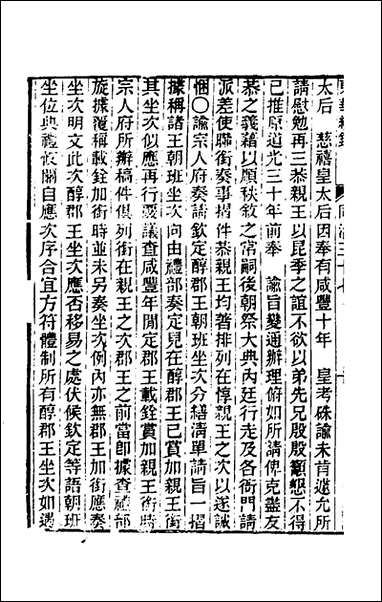 太后　慈禧皇太后因奉有咸豐十年　皇考硃諭未肯遽允所
請慰勉再三恭親王以昆季之誼不欲以弟先兄殷殷籲懇不得
已推原道光三十年前奉　諭旨變通辦理俯如所請俾克盡友
恭之義藉以順秩敘之常嗣後朝祭大典內廷行走及各衙門請
派差使聯銜奏事摺件恭親王均著排列在惇親王之次以遂誠
悃〇諭宗人府奏請欽定醇郡王朝班坐次分繕清單請旨一摺
據稱諸王朝班坐次向由禮部奏定見在醇郡王已賞加親王銜
其坐次似應再行覈議查咸豐年閒定郡王載銓賞加親王銜時
宗人府所辦稿件俱列銜在親王之次郡王之前當卽據查禮部
旋據覆稱載銓加銜時並未另奏坐次例內亦無郡王加銜應奏
坐次明文此次醇郡王坐次應否移易之處伏候欽定等語朝班
坐位典禮攸關自應次序合宜方符體制所有醇郡王坐次如遇